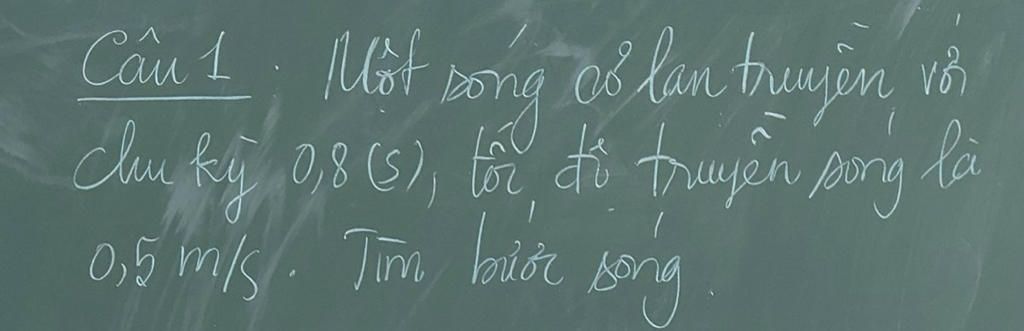 Câu 1. Một sóng cơ lan truyền với
chu kỳ 0,8 (s), tốc độ truyền sóng là
0,5 m/s. Tìm bước sóng.